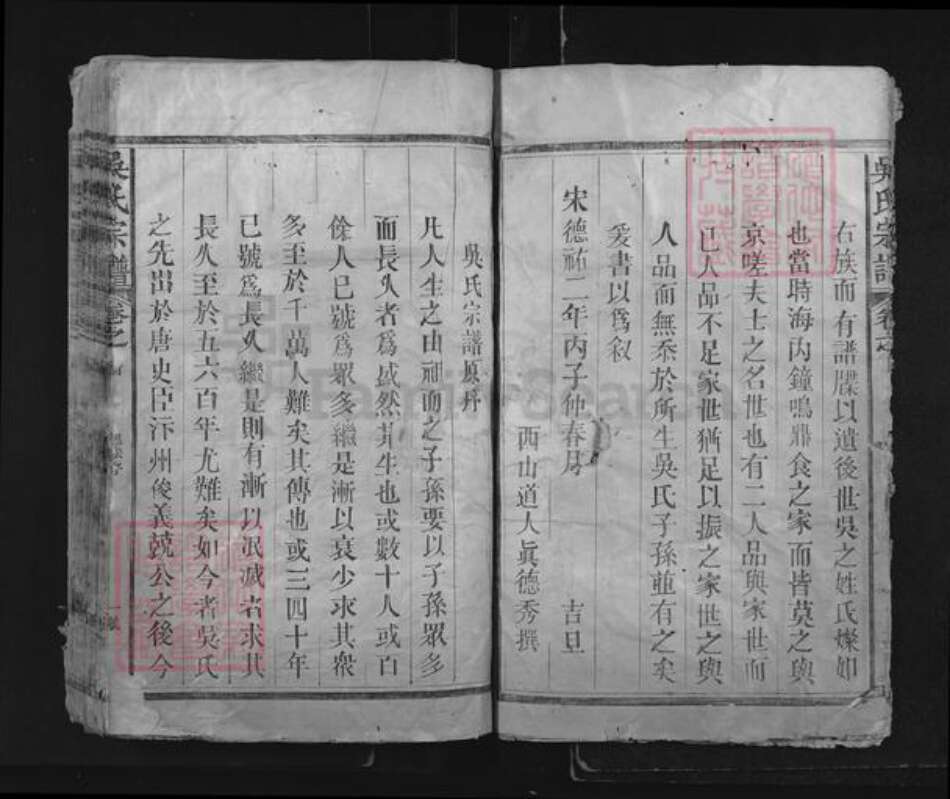 吳氏宗譜 卷之
右族而有譜牒以遺後世吳之姓氏燦如
也當時海內鐘鳴鼎食之家而皆莫之與
京嗟夫士之名世也有二人品與家世而
已人品不足家世猶足以振之家世之與
人品而無忝於所生吳氏子孫並有之矣
爰書以爲敘
宋德祐二年丙子仲春月 吉旦
西山道人眞德秀撰
吳氏宗譜原序
凡人生之由祖而之子孫要以子孫眾多
而長久者爲盛然其生也或數十人或百
餘人已號爲眾多繼是漸以衰少求其衆
多至於千萬人難矣其傳也或三四十年
已號爲長久繼是則有漸以泯滅者求其
長久至於五六百年尤難矣如今者吳氏
之先出於唐史臣汴州俊義兢公之後今
吳氏宗譜 卷之